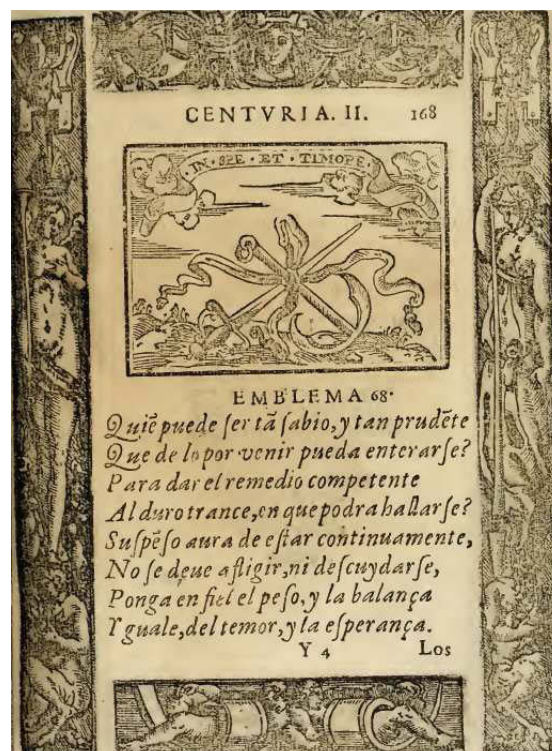 CENTVRIA. II. 168
·IN·SPE·ET·TIMORE·
EMBLEMA 68·
Quiẽ puede ſer tã ſabio, y tan prudẽte
Que de lo por venir pueda enterarſe?
Para dar el remedio competente
Al duro trance, en que podra hallarſe?
Suſpẽſo aura de eſtar continuamente,
No ſe deue afligir, ni deſcuydarſe,
Ponga en fiel el peſo, y la balança
Yguale, del temor, y la eſperança.
Y 4 Los